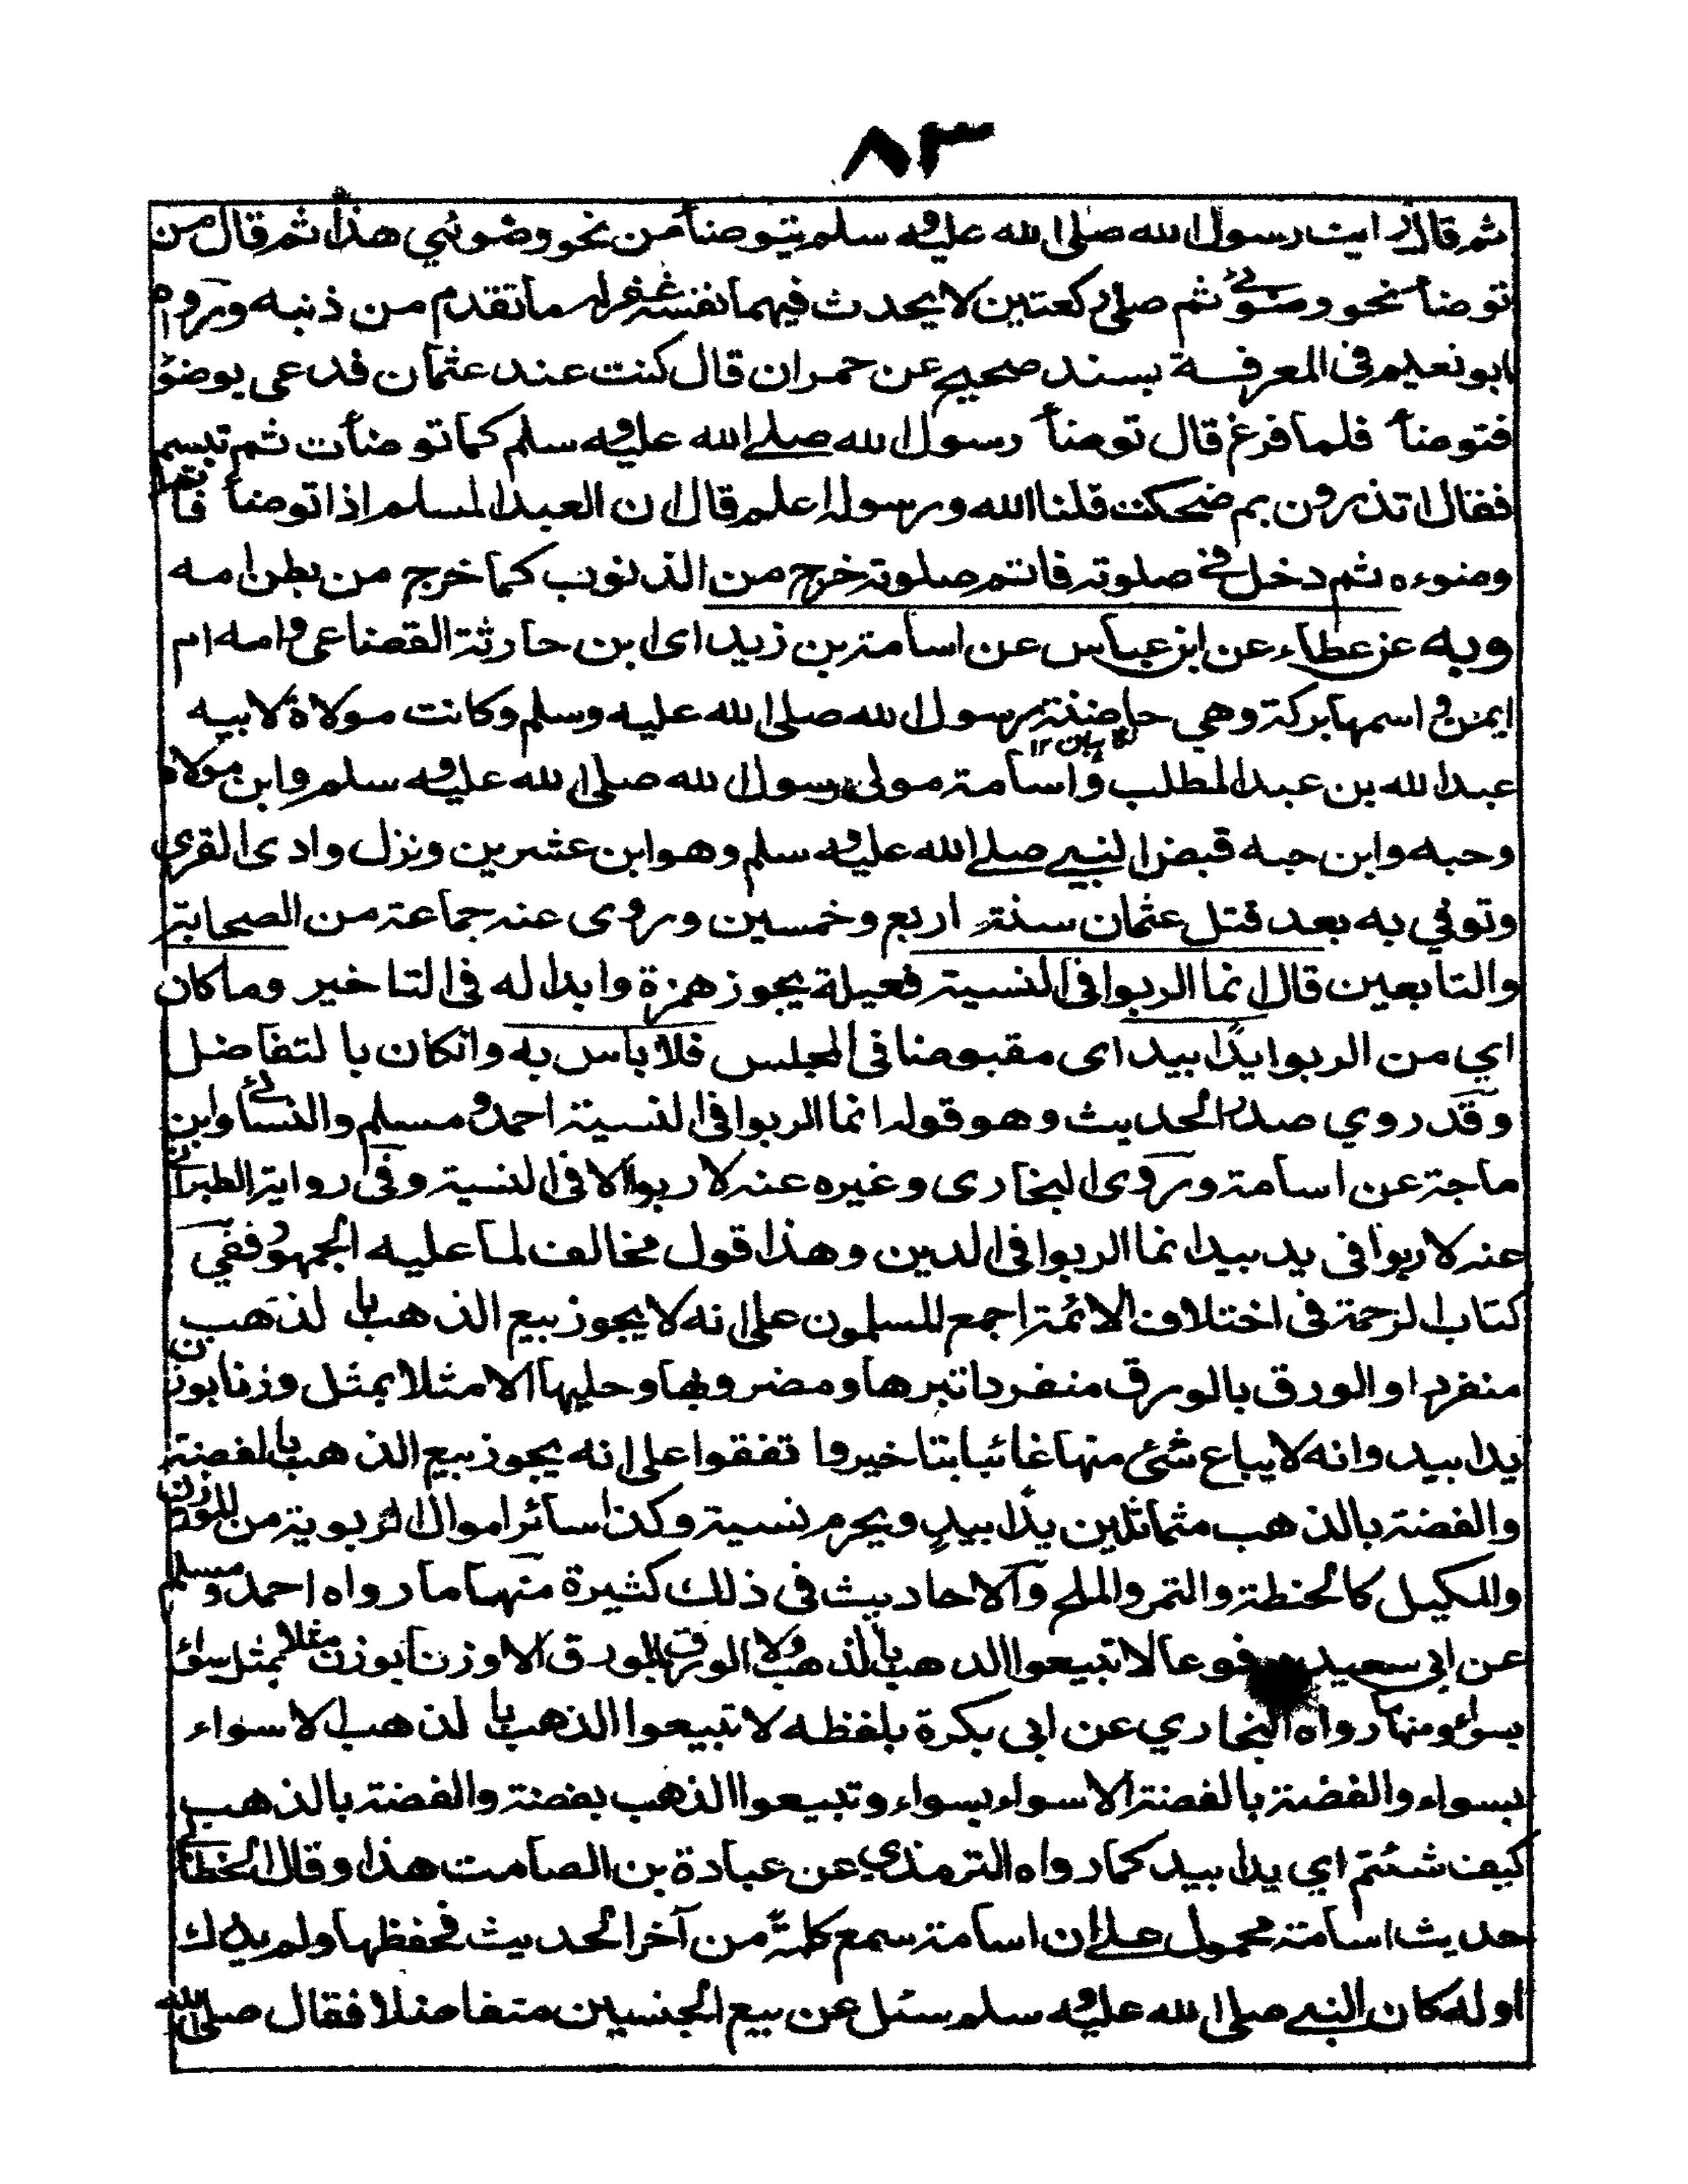 ٨٣
ثم قال رايت رسول الله صلى الله عليه وسلم يتوضأ من نحو وضوئي هذا ثم قال من
توضأ نحو وضوئي ثم صلى ركعتين لا يحدث فيهما نفسه غفر له ما تقدم من ذنبه وروم
ابو نعيم فى المعرفة بسند صحيح عن حمران قال كنت عند عثمان فدعى بوضوء
فتوضأ فلما فرغ قال توضأ رسول الله صلے الله عليه وسلم كما توضأت ثم تبسم
فقال اتدرون بم ضحكت قلنا الله ورسوله اعلم قال ان العبد المسلم اذا توضأ فاتم
وضوءه ثم دخل في صلوته فاتم صلوته خرج من الذنوب كما خرج من بطن امه
وبه عن عطاء عن ابن عباس عن اسامة بن زيد اى ابن حارثة القضاعى وامه ام
ايمن و اسمها بركة وهي حاضنة رسول الله صلى الله عليه وسلم وكانت مولاة لابيه
عبد الله بن عبد المطلب واسامة مولى رسول الله صلى الله عليه وسلم وابن مولاه
وحبه وابن حبه قبض النبي صلے الله عليه وسلم وهو ابن عشرين ونزل وادى القرى
وتوفي به بعد قتل عثمان سنة اربع وخمسين وروى عنه جماعة من الصحابة
والتابعين قال انما الربوا فى النسية فعيلة يجوز همزة وابداله فى التاخير وما كان
اي من الربوا يدًا بيد اى مقبوضا فى المجلس فلا باس به وانكان با لتفاضل
وقد روي صدر الحديث وهو قوله انما الربوا فى النسية احمد ومسلم والنسائے وابن
ماجة عن اسامة وروى البخارى وغيره عنه لا ربوا الا فى النسية وفى رواية الطبرانى
عنه لا ربوا فى يد بيد انما الربوا فى الدين وهذا قول مخالف لما عليه الجمهور ففي
كتاب الرحمة فى اختلاف الائمة اجمع المسلمون على انه لا يجوز بيع الذهب با لذهب
منفردا والورق بالورق منفردا تبرها ومضروبها وحليها الا مثلا بمثل وزنا بوزن
يدا بيد وانه لا يباع شئ منها غائبا بتاخير وا تفقوا على انه يجوز بيع الذهب بالفضة
والفضة بالذهب متماثلين يدًا بيدٍ ويحرم نسية وكذا سائر اموال الربوية من الموزون
والمكيل كالحنطة والتمر والملح والاحاديث فى ذلك كثيرة منها ما رواه احمد ومسلم
عن ابى سعيد فوعا لا تبيعوا الذهب بالذهب ولا الورق بالورق الا وزنا بوزن مثلا بمثل سواء
بسواء ومنها رواه البخاري عن ابى بكرة بلفظه لا تبيعوا الذهب با لذهب الا سواء
بسواء والفضة بالفضة الا سواء بسواء وتبيعوا الذهب بفضة والفضة بالذهب
كيف شئتم اي يدا بيد كما رواه الترمذي عن عبادة بن الصامت هذا وقال الخطابى
حديث اسامة محمول علے ان اسامة سمع كلمة من آخر الحديث فحفظها ولم يدرك
اوله كان النبي صلى الله عليه وسلم سئل عن بيع الجنسين متفاضلا فقال صلى الله